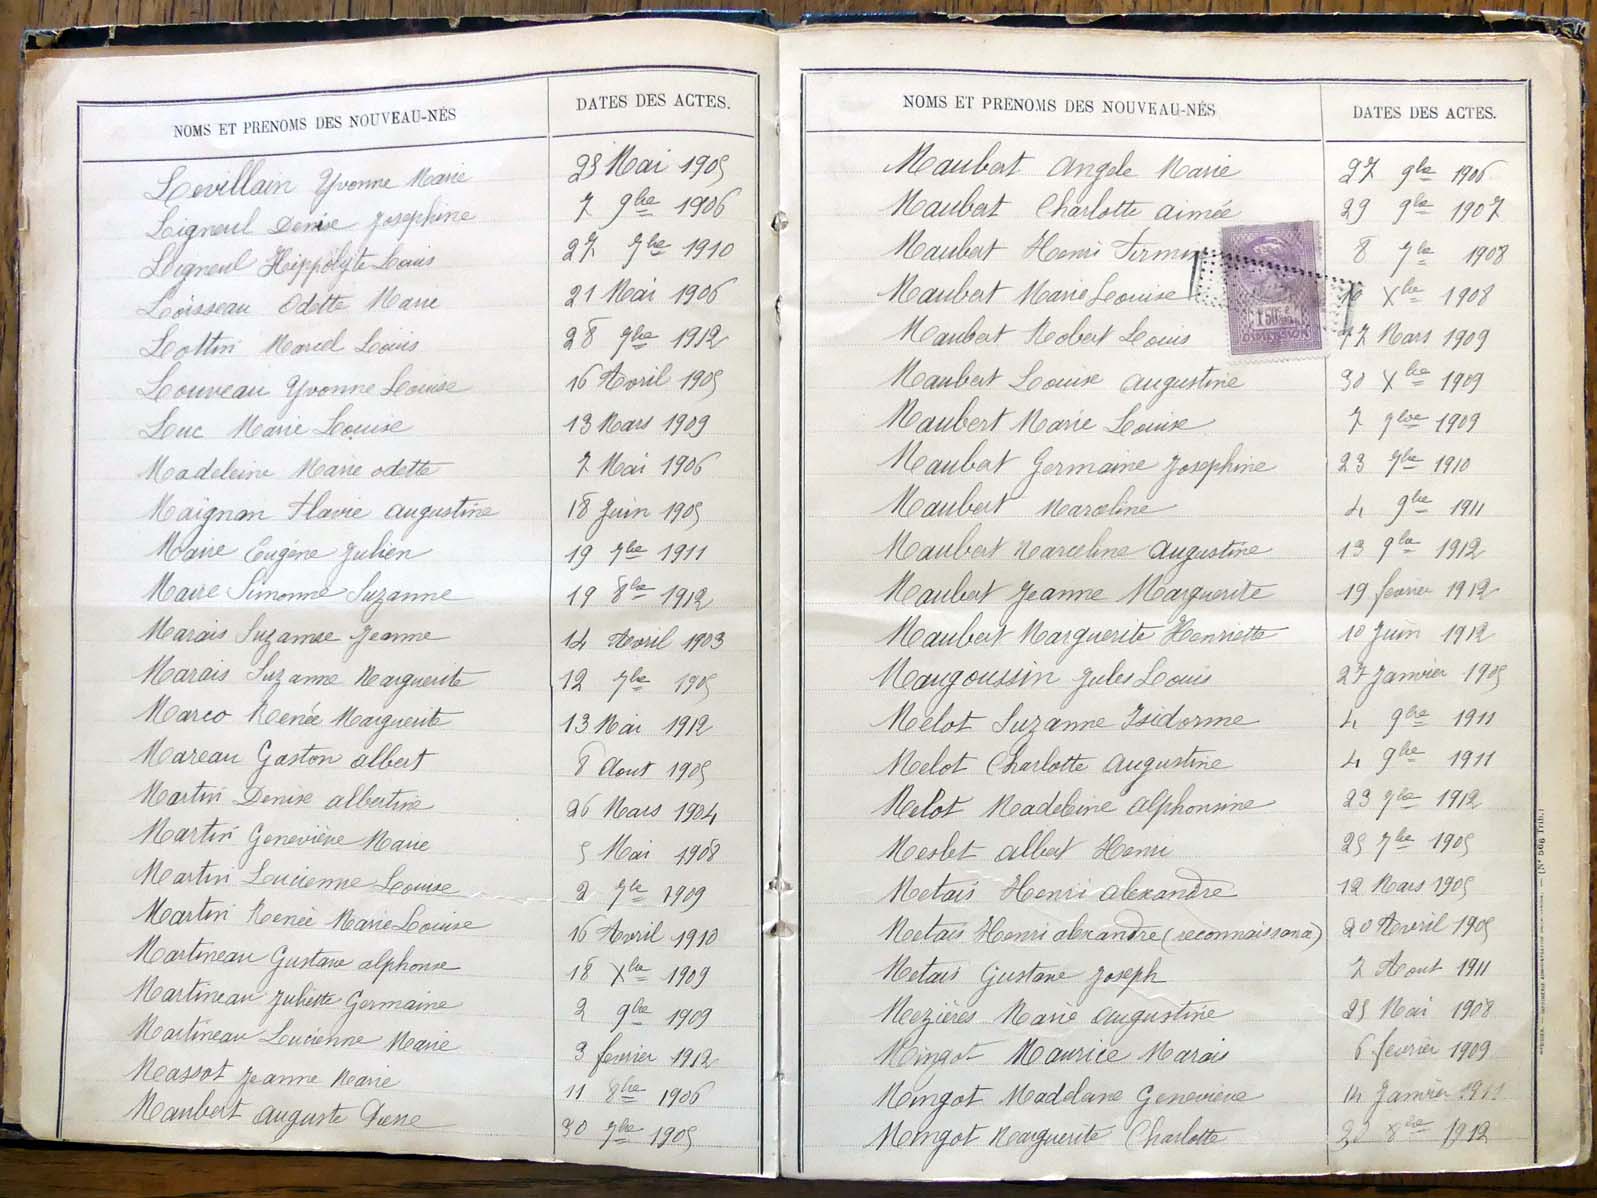 NOMS ET PRENOMS DES NOUVEAU-NÉS DATES DES ACTES.
Levillain Yvonne Marie 25 Mai 1905
Ligneul Denise Josephine 7 9bre 1906
Ligneul Hippolyte Louis 27 7bre 1910
Loisseau Odette Marie 21 Mai 1906
Lottin Marcel Louis 28 7bre 1912
Louveau Yvonne Louise 16 Avril 1905
Luc Marie Louise 13 Mars 1909
Madeleine Marie odette 7 Mai 1906
Maignan Flavie augustine 18 Juin 1905
Maire Eugéne Julien 19 7bre 1911
Maire Simonne Suzanne 19 8bre 1912
Marais Suzanne Jeanne 14 Avril 1903
Marais Suzanne Marguerite 12 7bre 1905
Marco Renée Marguerite 13 Mai 1912
Mareau Gaston albert 8 Aout 1905
Martin Denise albertine 26 Mars 1904
Martin Geneviève Marie 5 Mai 1908
Martin Lucienne Louise 2 7bre 1909
Martin Renée Marie Louise 16 Avril 1910
Martineau Gustave alphonse 18 Xbre 1909
Martineau Juliette Germaine 2 9bre 1909
Martineau Lucienne Marie 3 fevrier 1912
Massot Jeanne Marie 11 8bre 1906
Maubert auguste 30 7bre 1905
NOMS ET PRENOMS DES NOUVEAU-NÉS DATES DES ACTES.
Maubert Angele Marie 27 9bre 1906
Maubert Charlotte aimée 29 9bre 1907
Maubert Henri Firmin 8 7bre 1908
Maubert Marie Louise 10 Xbre 1908
1 50
Maubert Robert Louis 17 Mars 1909
DIMENSION
Maubert Louise augustine 30 Xbre 1909
Maubert Marie Louise 7 9bre 1909
Maubert Germaine Josephine 23 7bre 1910
Maubert Marceline 4 9bre 1911
Maubert Marceline Augustine 13 9bre 1912
Maubert Jeanne Marguerite 19 fevrier 1912
Maubert Marguerite Henriette 10 Juin 1912
Maugoussin Jules Louis 27 Janvier 1905
Melot Suzanne Isidorine 4 9bre 1911
Melot Charlotte Augustine 4 9bre 1911
Melot Madeleine alphonsine 23 7bre 1912
Meslet albert Henri 25 7bre 1905
Metais Henri alexandre 12 Mars 1905
Metais Henri alexandre (reconnaissance) 20 Avril 1905
Metais Gustave Joseph 7 Aout 1911
Mezières Marie Augustine 25 Mai 1908
Mingot Maurice Marais 6 fevrier 1909
Mingot Madelane Geneviève 14 Janvier 1911
Mingot Marguerite Charlotte 8bre 1912
(N. 596 Trib.)